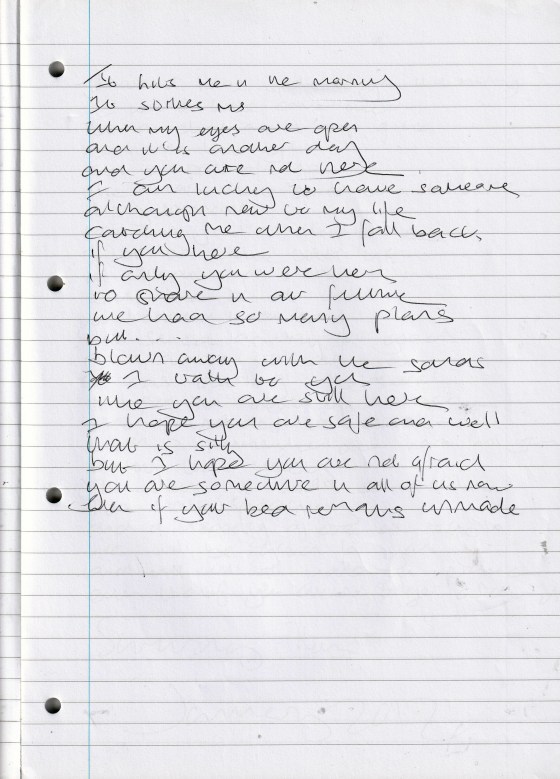 It hits me in the morning
It strikes me
when my eyes are open
and it is another day
and you are not here
I am lucky to have someone
although new to my life
catching me when I fall back
if you were
if only you were here
to share in our future
we had so many plans
but....
blown away with the sands
I talk to you
like you are still here
I hope you are safe and well
that is silly
but I hope you are not afraid
you are somewhere in all of us now
even if your bed remains unmade